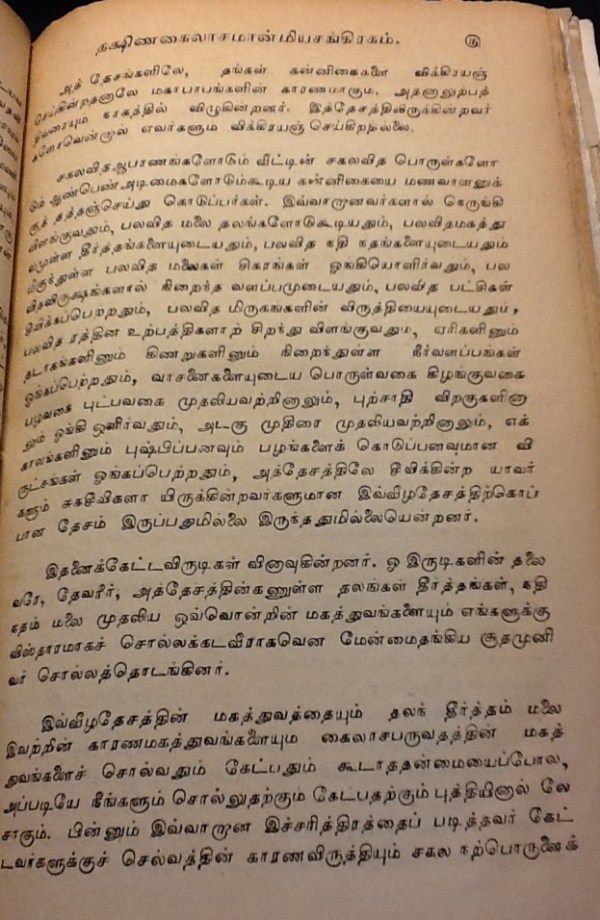 தக்ஷிணகைலாசமான்மியசங்கிரகம். ௫
அத் தேசங்களிலே, தங்கள் கன்னிகைகளை விக்கிரயஞ்
செய்கின்றதனாலே மகாபாபங்களின் காரணமாகும். அதனாலுற்பத்
நிவரையும் நரகத்தில் விழுகின்றனர். இத்தேசத்திலிருக்கின்றவர்
களோவென்றால் எவர்களும் விக்கிரயஞ் செய்கிறதில்லை.
சகலவிதஆபரணங்களோடும் வீட்டின் சகலவித பொருள்களோ
டும் ஆண்பெண்அடிமைகளோடும்கூடிய கன்னிகையை மணவாளனுக்
குத் தத்தஞ்செய்து கொடுப்பர்கள். இவ்வாறானவர்களால் நெருங்கி
விளங்குவதும், பலவித மலை தலங்களோடுகூடியதும், பலவிதமகத்து
வமுள்ள தீர்த்தங்களையுடையதும், பலவித நதி நதங்களையுடையதும்
மிகுந்துள்ள பலவித மலைகள் சிகரங்கள் ஓங்கியொளிர்வதும், பல
விதவிருக்ஷங்களால் நிறைந்த வளப்பமுடையதும், பலவித பட்சிகள்
சீவிக்கப்பெற்றதும், பலவித மிருகங்களின் விருத்தியையுடையதும்,
பலவித ரத்தின உற்பத்திகளாற் சிறந்து விளங்குவதும், ஏரிகளினும்
தடாகங்களினும் கிணறுகளினும் நிறைந்துள்ள நீர்வளப்பங்கள்
ஓங்கப்பெற்றதும், வாசனைகளையுடைய பொருள்வகை கிழங்குவகை
பழவகை புட்பவகை முதலியவற்றினாலும், புற்சாதி விறகுகளினா
லும் ஓங்கி ஒளிர்வதும், அடகு முதிரை முதலியவற்றினாலும், எக்
காலங்களினும் புஷ்பிப்பனவும் பழங்களைக் கொடுப்பனவுமான வி
ருட்சங்கள் ஓங்கப்பெற்றதும், அத்தேசத்திலே சீவிக்கின்ற யாவர்
களும் சுகசீவிகளா யிருக்கின்றவர்களுமான இவ்வீழதேசத்திற்கொப்
பான தேசம் இருப்பதுமில்லை இருந்ததுமில்லையென்றனர்.
இதனைக்கேட்டவிருடிகள் வினாவுகின்றனர். ஓ இருடிகளின் தலை
வரே, தேவரீர், அத்தேசத்தின்கணுள்ள தலங்கள் தீர்த்தங்கள், நதி
நதம் மலை முதலிய ஒவ்வொன்றின் மகத்துவங்களையும் எங்களுக்கு
விஸ்தாரமாகச் சொல்லக்கடவீராகவென மேன்மைதங்கிய சூதமுனி
வர் சொல்லத்தொடங்கினர்.
இவ்வீழதேசத்தின் மகத்துவத்தையும் தலந் தீர்த்தம் மலை
இவற்றின் காரணமகத்துவங்களையும் கைலாசபருவதத்தின் மகத்
துவங்களைச் சொல்வதும் கேட்பதும் கூடாததன்மையைப்போல,
அப்படியே நீங்களும் சொல்லுதற்கும் கேட்பதற்கும் புத்தியினால் லே
சாகும். பின்னும் இவ்வாறான இச்சரித்திரத்தைப் படித்தவர் கேட்
டவர்களுக்குச் செல்வத்தின் காரணவிருத்தியும் சகல நற்பொருளைக்